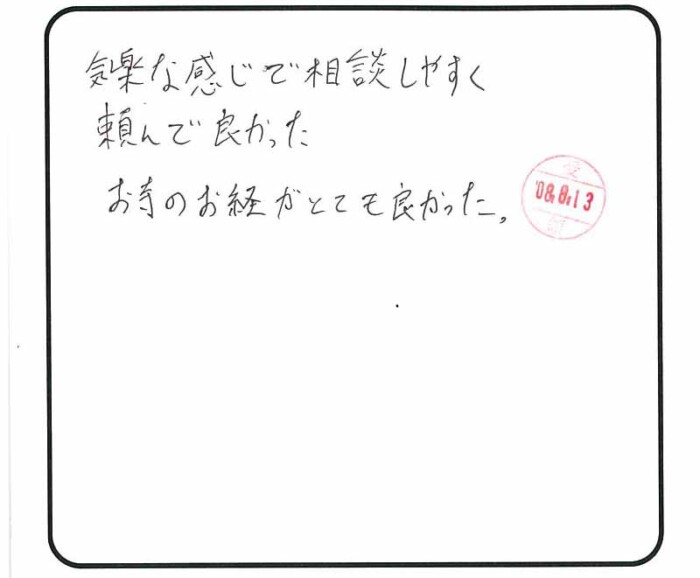 気楽な感じで相談しやすく
頼んで良かった
お寺のお経がとても良かった。
受
'08.8.13
付